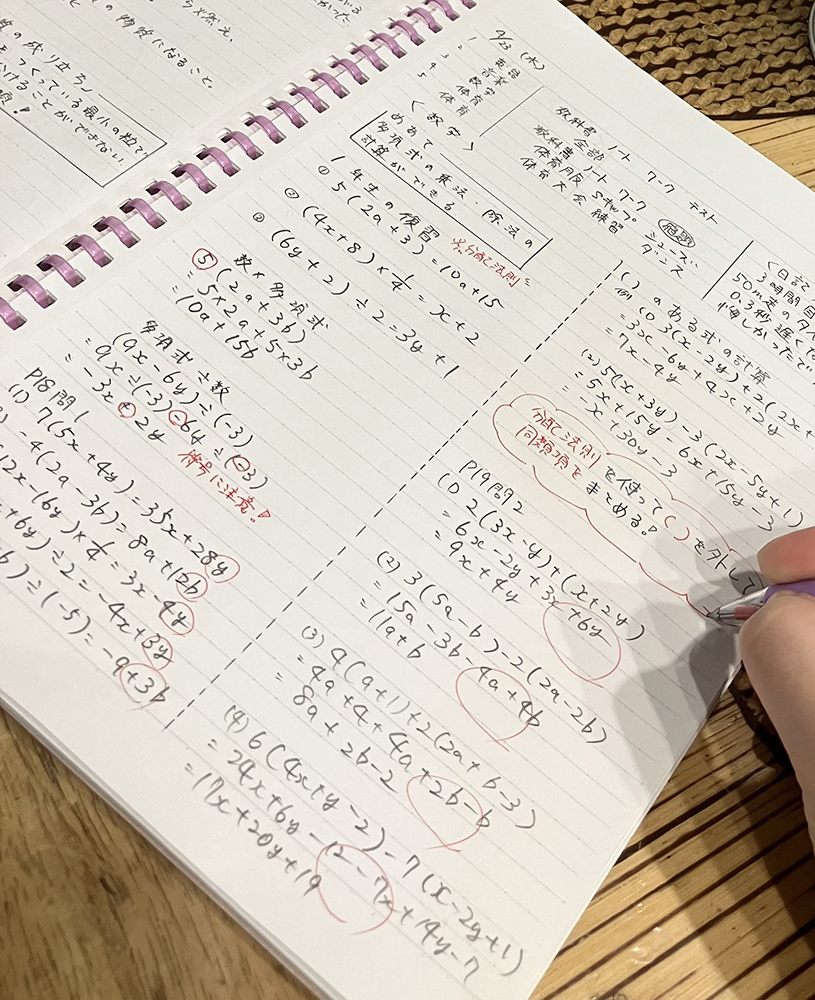 の成り立ち」
をつくっている最小の粒で
けることができない。
の物質になること。
9/23 (水)
1 英語
2 音楽
3 数学
4 体育
5 体育
教科書 ノート ワーク テスト
全部
教科書 ノート ワーク
体育用服 Sキップ シューズ
体育大会 練習 ダンス
宿題
〈日記
3時間目
50m走のタイ
0.3秒遅くな
悔しかったで
〈数学〉
めあて
多項式の乗法、除法の
計算ができる
1年生の復習
① 5(2a+3)=10a+15
※分配法則
② (4x+8)×1/4=x+2
③ (6y+2)÷2=3y+1
数×多項式
⑤(2a+3b)
=5×2a+5×3b
=10a+15b
多項式÷数
(9x-6y)÷(-3)
=9x÷(-3)-6y÷(-3)
=-3x+2y
符号に注意!
P18問1
(1) 7(5x+4y)=35x+28y
-4(2a-3b)=8a+12b
12x-16y)×1/4=3x-4y
+6y)÷2=-4x+3y
)÷(-5)=-9+3b
( )のある式の計算
例 (1) 3(x-2y)+2(2x+
=3x-6y+4x+2y
=7x-4y
(2) 5(x+3y)-3(2x-5y+1)
=5x+15y-6x+15y-3
=-x+30y-3
分配法則を使って( )を外して
同類項をまとめる!
P19問2
(1) 2(3x-y)+(x+2y)
=6x-2y+3x+6y
=9x+4y
(2) 3(5a-b)-2(2a-2b)
=15a-3b-4a+4b
=11a+b
(3) 4(a+1)+2(2a+b-3)
=4a+4+4a+2b-b
=8a+2b-2
(4) 6(4x+y-2)-7(x-2y+1)
=24x+6y-12-7x+14y-7
=17x+20y+19